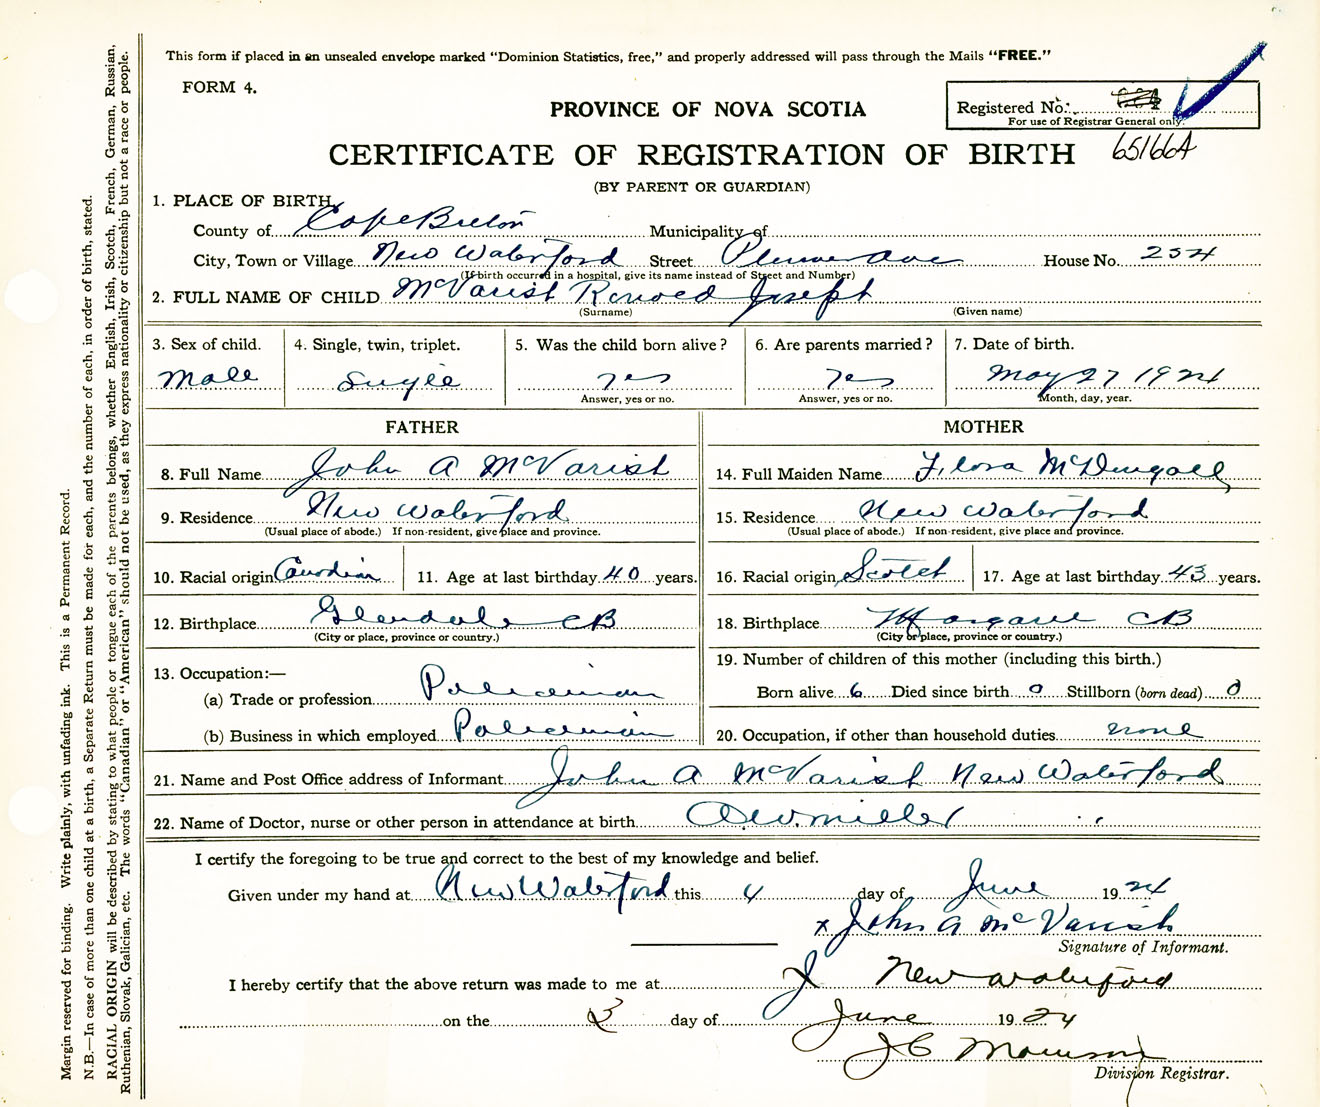 This form if placed in an unsealed envelope marked "Dominion Statistics, free," and properly addressed will pass through the Mails "FREE."
FORM 4.
PROVINCE OF NOVA SCOTIA
Registered No.
For use of Registrar General only.
CERTIFICATE OF REGISTRATION OF BIRTH 65166A
(BY PARENT OR GUARDIAN)
1. PLACE OF BIRTH,
County of Cape Breton Municipality of
City, Town or Village New Waterford Street Plummer Ave House No. 254
(If birth occurred in a hospital, give its name instead of Street and Number)
2. FULL NAME OF CHILD McVarish Ronald Joseph
(Surname) (Given name)
3. Sex of child. 4. Single, twin, triplet. 5. Was the child born alive? 6. Are parents married? 7. Date of birth.
Male Single yes Yes May 27 1924
Answer, yes or no. Answer, yes or no. Month, day, year.
FATHER MOTHER
8. Full Name John A McVarish 14. Full Maiden Name Flora McDougall
9. Residence New Waterford 15. Residence New Waterford
(Usual place of abode.) If non-resident, give place and province. (Usual place of abode.) If non-resident, give place and province.
10. Racial origin Canadian 11. Age at last birthday 40 years. 16. Racial origin Scotch 17. Age at last birthday 43 years.
12. Birthplace Glendale CB 18. Birthplace Margaree CB
(City or place, province or country.) (City or place, province or country.)
13. Occupation:— 19. Number of children of this mother (including this birth.)
(a) Trade or profession Policeman Born alive 6 Died since birth 0 Stillborn (born dead) 0
(b) Business in which employed Policeman 20. Occupation, if other than household duties none
21. Name and Post Office address of Informant John A McVarish New Waterford
22. Name of Doctor, nurse or other person in attendance at birth A.W. Miller
I certify the foregoing to be true and correct to the best of my knowledge and belief.
Given under my hand at New Waterford this 4 day of June 1924
x John A McVarish
Signature of Informant.
I hereby certify that the above return was made to me at New Waterford
on the 3 day of June 1924
J C Morrison
Division Registrar.
Margin reserved for binding. Write plainly, with unfading ink. This is a Permanent Record.
N.B.—In case of more than one child at a birth, a Separate Return must be made for each, and the number of each, in order of birth, stated.
RACIAL ORIGIN will be described by stating to what people or tongue each of the parents belongs, whether English, Irish, Scotch, French, German, Russian,
Ruthenian, Slovak, Galician, etc. The words "Canadian" or "American" should not be used, as they express nationality or citizenship but not a race or people.